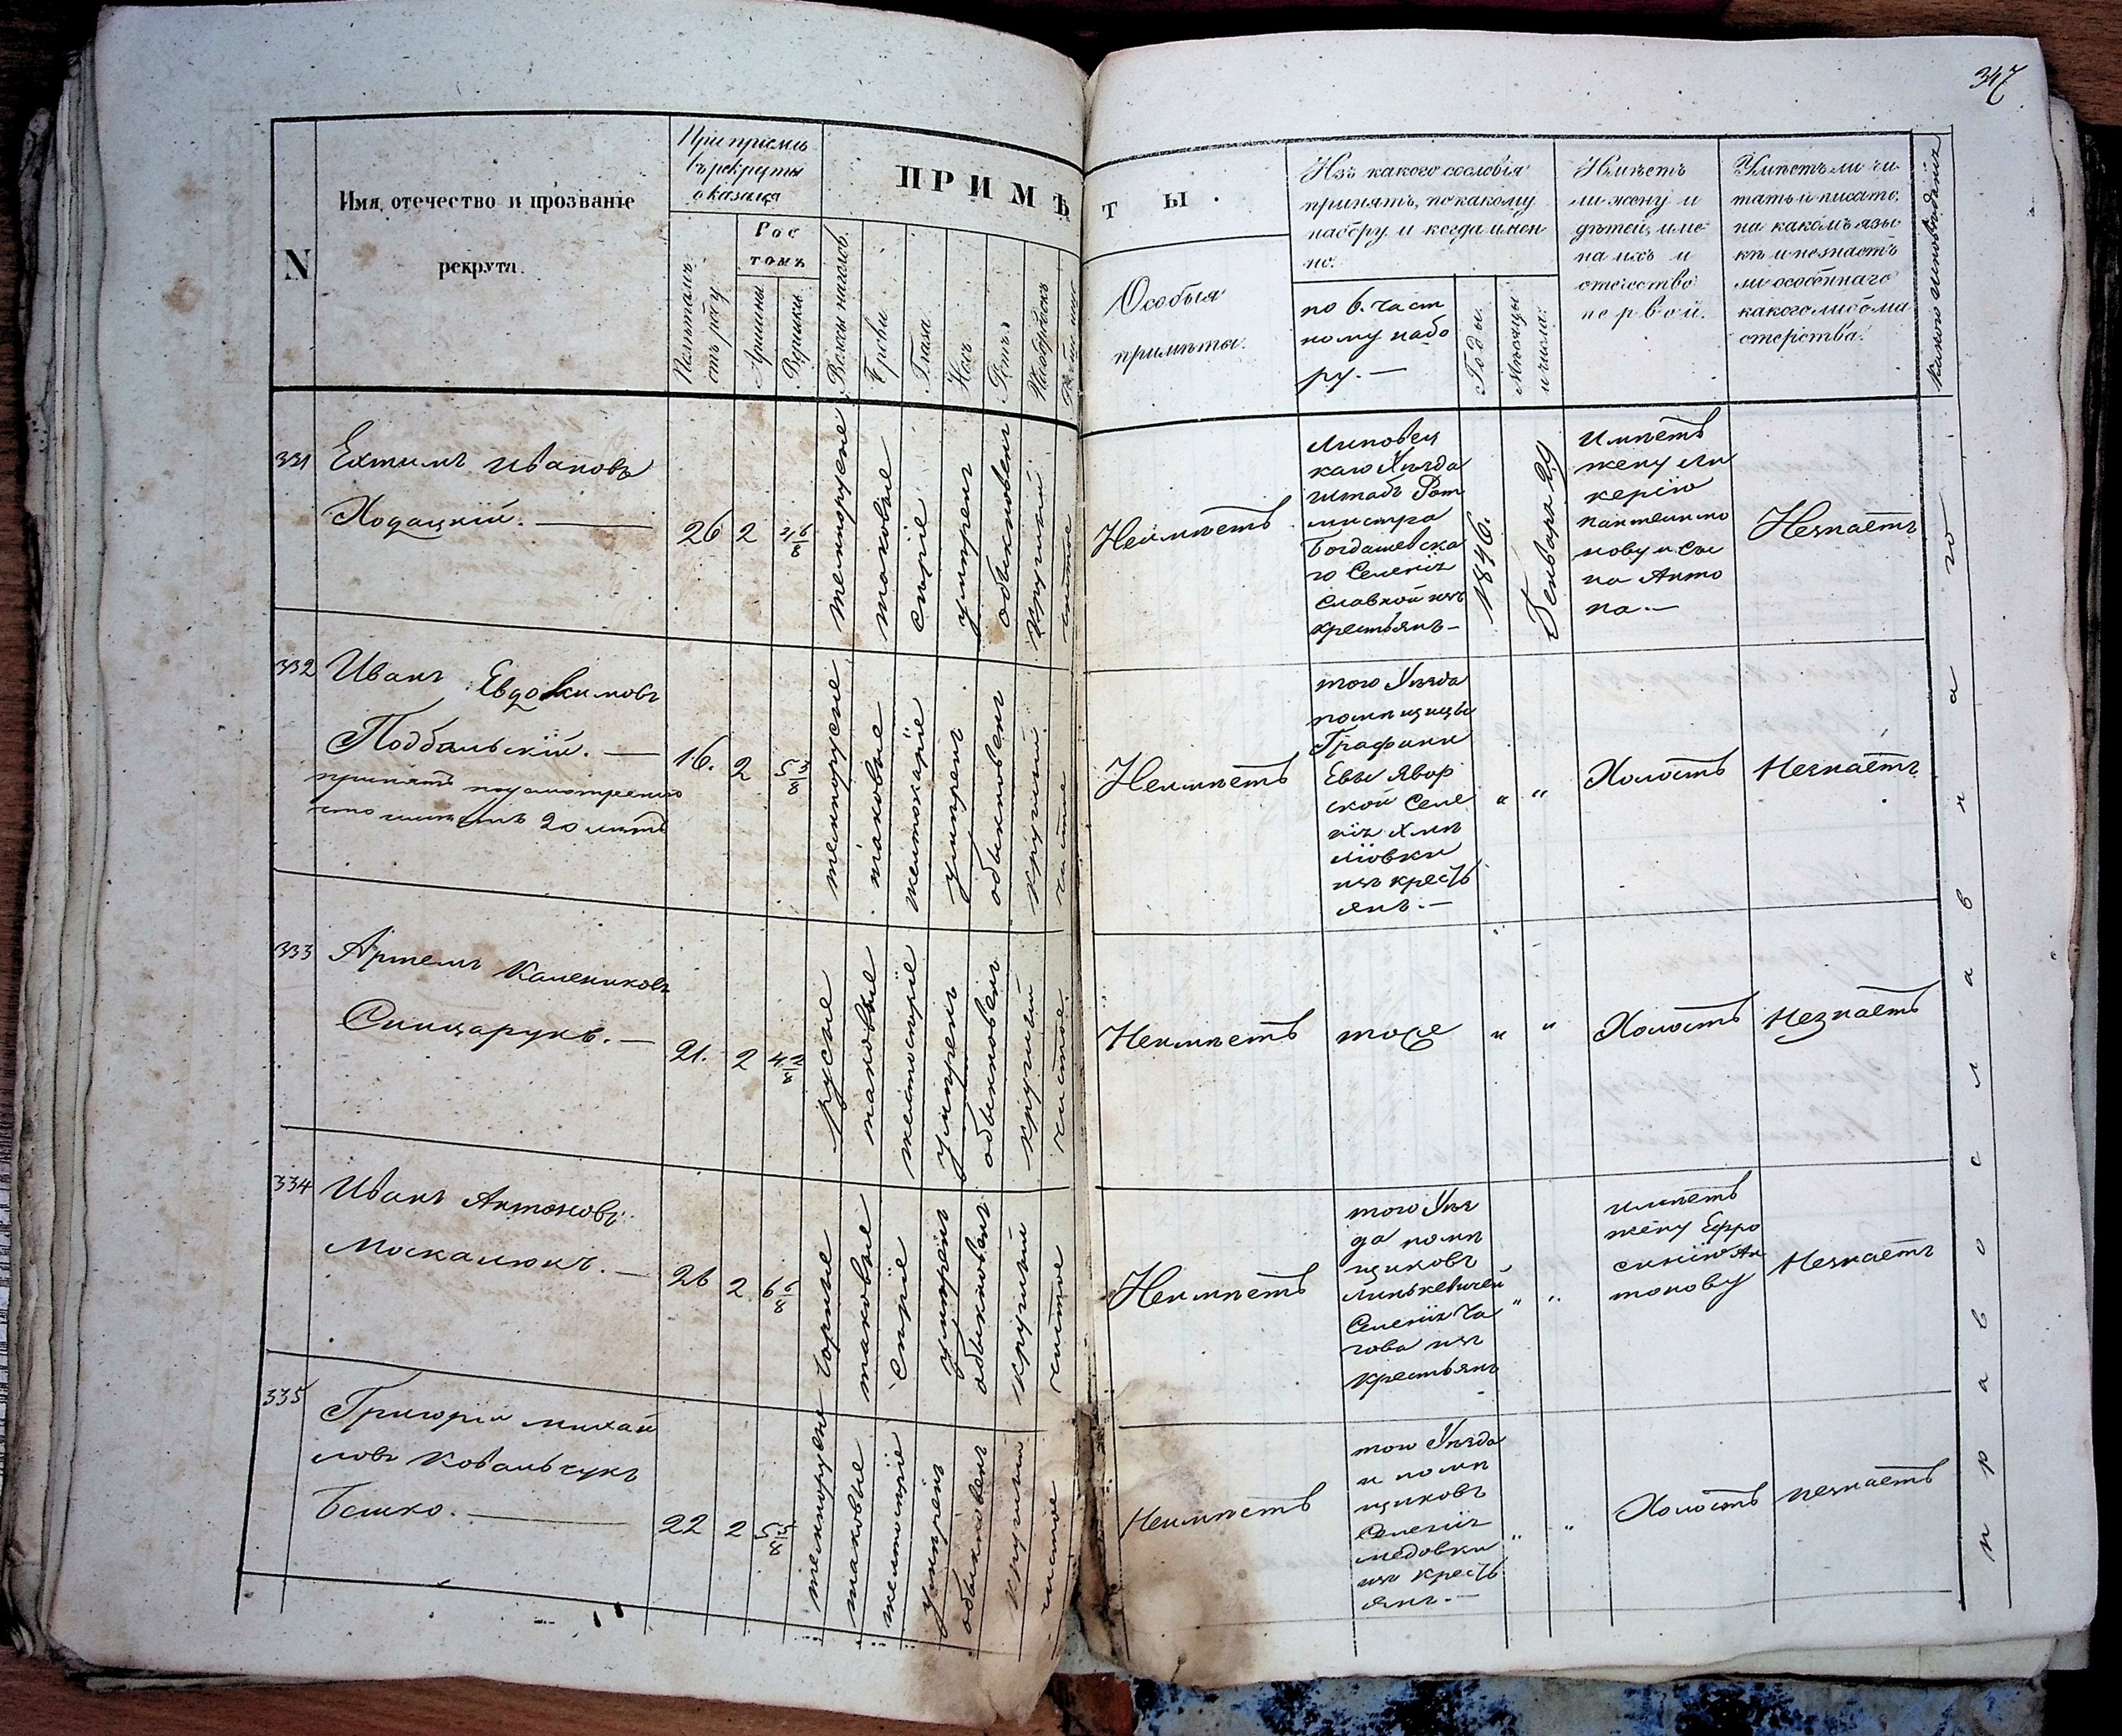 347
N
Имя, отечество и прозваніе
рекрута.
При пріемѣ
въ рекруты
оказался
Рос
томъ
Аршины
Вершки
Волосы на головѣ.
Брови
Глаза
Носъ
Ротъ
Подбородокъ
ПРИМѢ
ТЫ.
Особыя
примѣты.
Изъ какого сословія
принятъ, по какому
набору и когда имен
но.
по 6. част
ному набо
ру.—
Годы.
Мѣсяцы
и числа.
Имѣетъ
ли жену и
дѣтей, име
на ихъ и
отечество
первой.
Умѣетъ ли чи-
тать и писать,
на какомъ язы
кѣ и незнаетъ
ли особеннаго
какого либо ма
стерства.
Какого исповѣданія
331
Ехтимъ Ивановъ
Ходацкій.—
26
2
4 6/8
темнорусые
таковые
сѣрые
умѣрен
обыкновен
круглый
чистое
Неимѣетъ
Липовец
каго Уѣзда
штабъ Рот
мистра
Богдашевска
го Селенія
Славной изъ
крестьянъ—
1846.
Генваря 29
Имѣетъ
жену Ли
керію
Пантелимо
нову и Сы
на Анто
на.—
Незнаетъ
332
Иванъ Евдокимовъ
Подбальскій.—
принятъ по усмотренію
что имѣетъ 20 лѣтъ
16.
2
5 3/8
темнорусые
таковые
желтокаріе
умѣрен
обыкновен
круглый
чистое
Неимѣетъ
того Уѣзда
помѣщицы
Графини
Евы Явор
ской Селе
нія Хмѣ
лiовки
изъ кресть
янъ.—
"
"
Холостъ
Незнаетъ
333
Артемъ Калениковъ
Слицарукъ.—
21.
2
4 2/8
русые
таковые
желтосѣрые
умѣрен
обыкновен
круглый
чистое
Неимѣетъ
тоже
"
"
Холостъ
Незнаетъ
334
Иванъ Антоновъ
Москалюкъ.—
26
2
6 6/8
чорные
таковые
Сѣрые
умѣрен
обыкновен
круглый
чистое
Неимѣетъ
того Уѣз
да помѣ
щиковъ
Линькевичей
Селенія Ча
гова изъ
Крестьянъ
"
"
имѣетъ
жену Ефро
синію Ан
тонову
Незнаетъ
335
Григорій Михай
ловъ Ковальчукъ
Бешко.—
22
2
5 5/8
темнорусые
таковые
желтосѣрые
умѣрен
обыкновен
круглый
чистое
Неимѣетъ
того Уѣзда
и помѣ
щиковъ
Селенія
медовки
изъ кресть
янъ.—
"
"
Холостъ
незнаетъ
православнаго